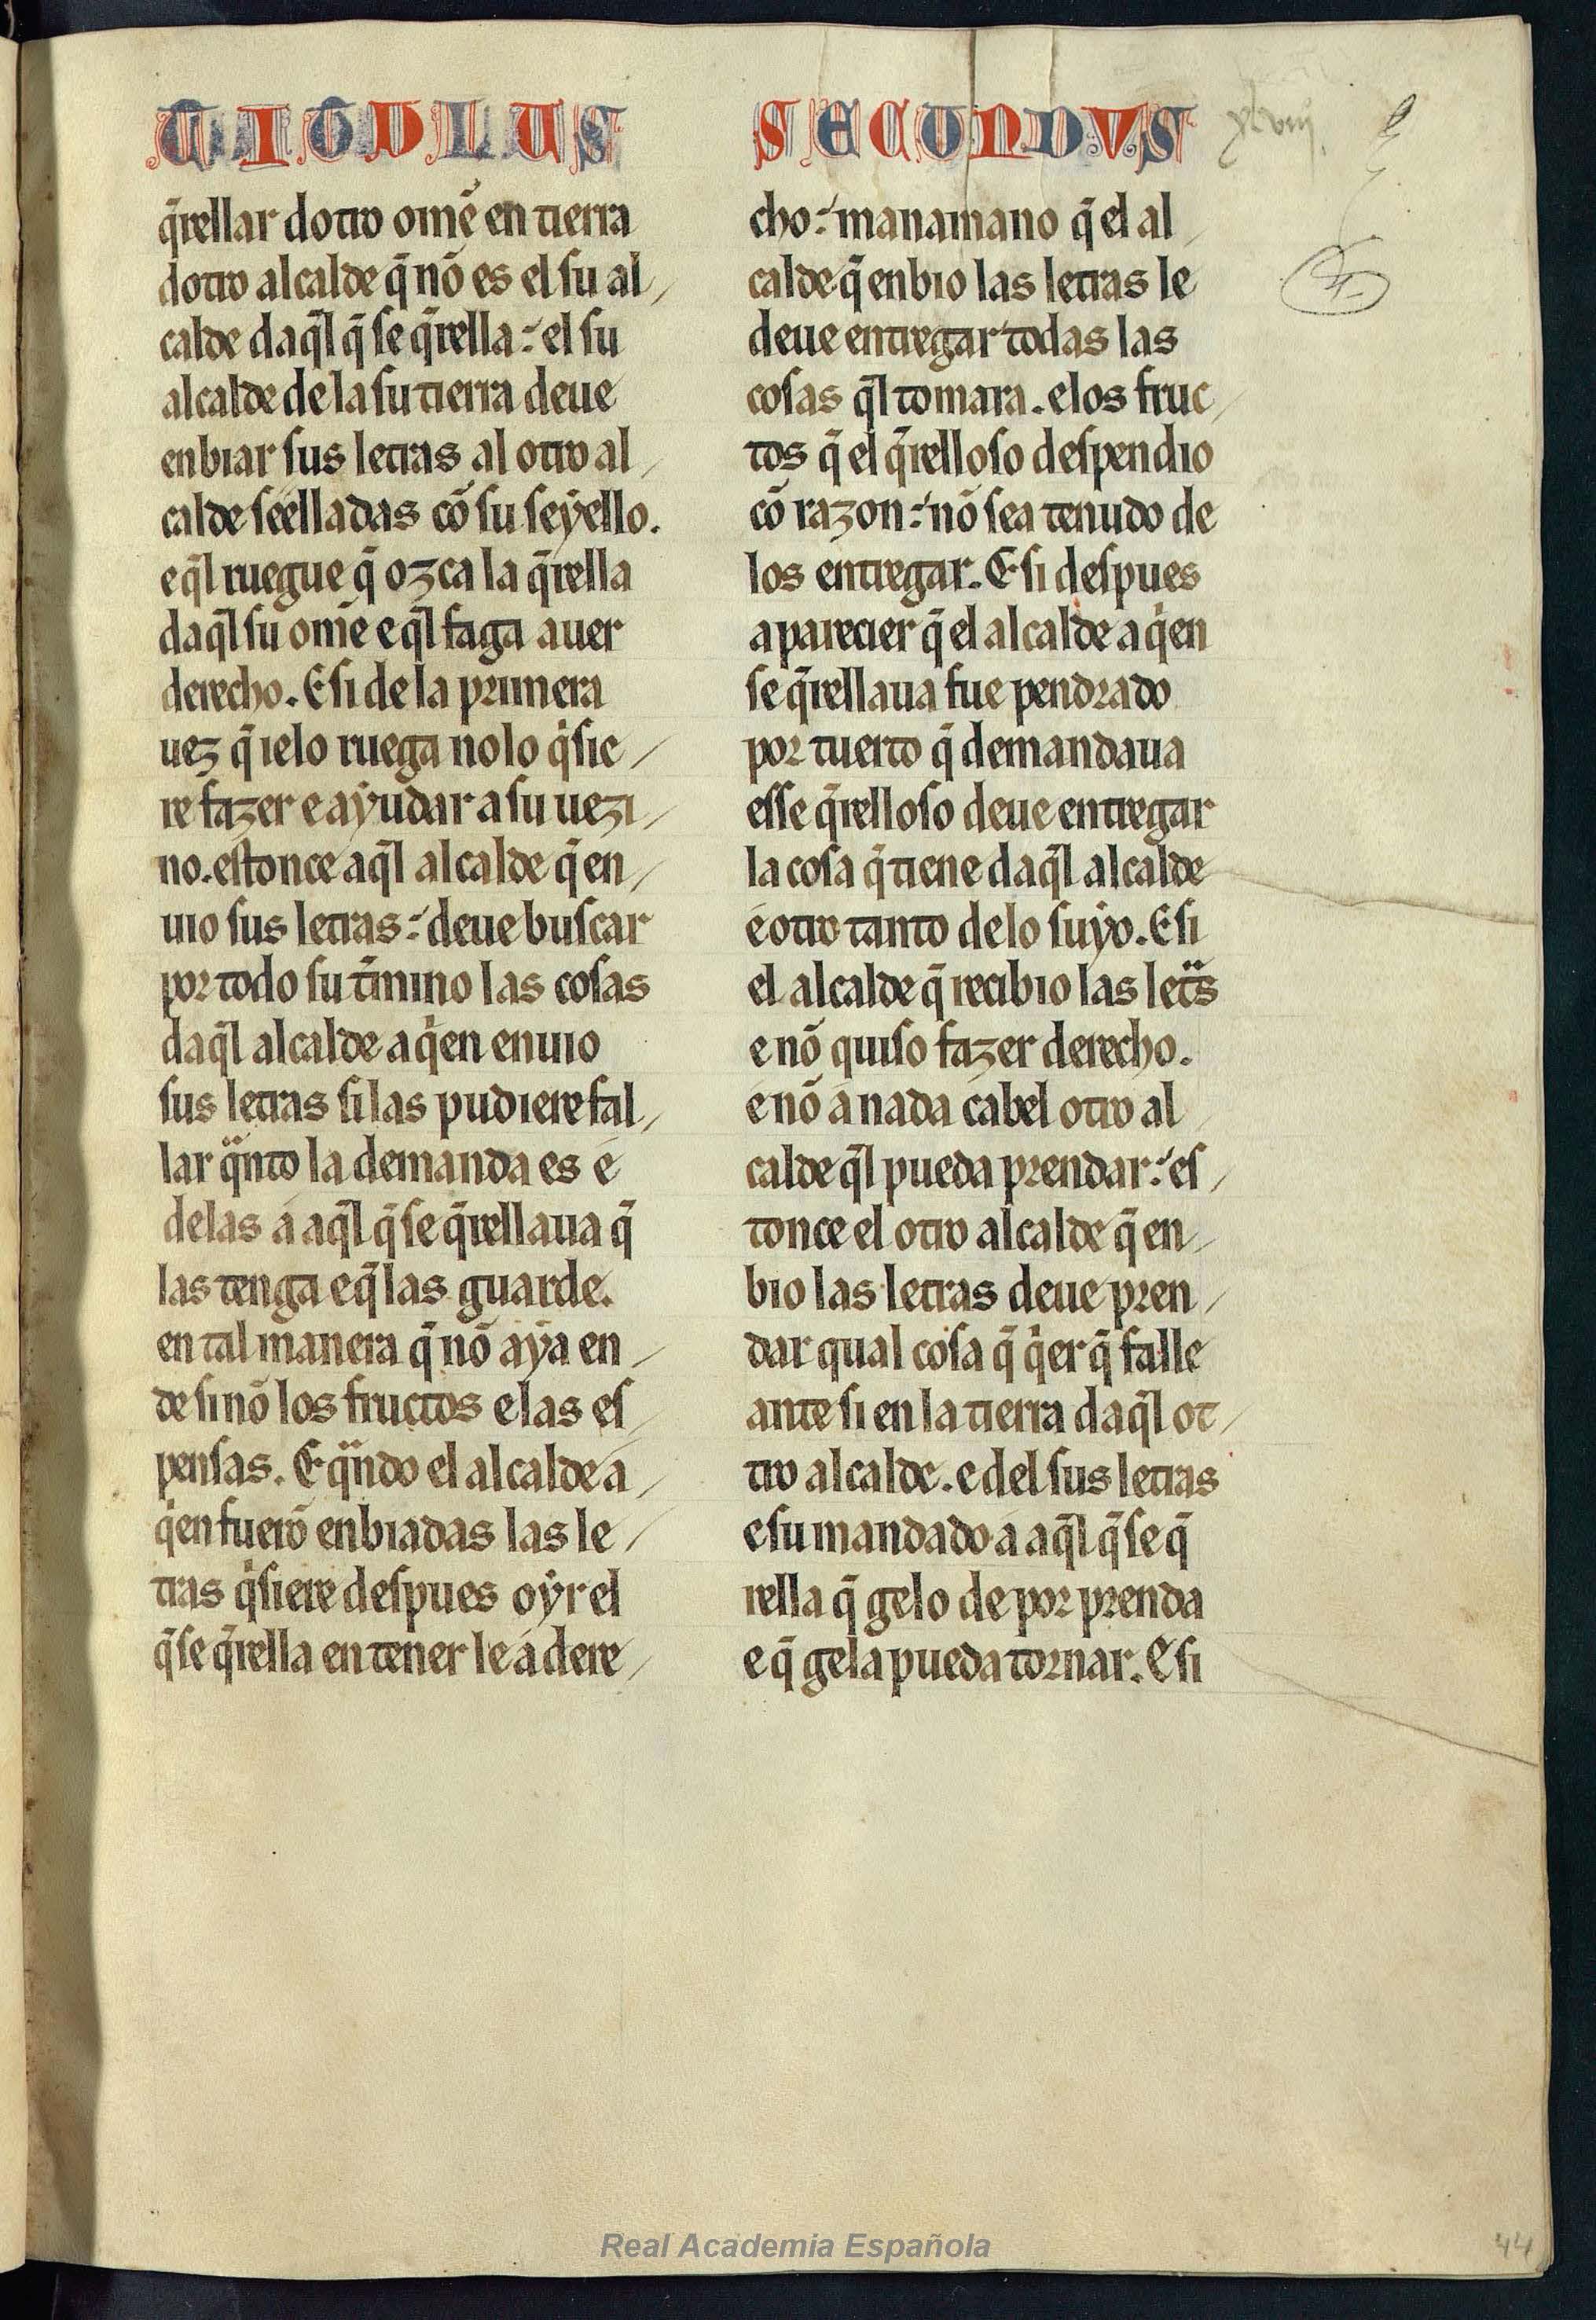 TITVLUS SECUNDVS
xlviij
q̃rellar dotro ome᷈ en tierra
dotro alcalde q̃ nõ es el su al/
calde daq̃l q̃ se q̃rella: el su
alcalde de la su tierra deue
enbiar sus letras al otro al/
calde seelladas cõ su seyello.
e q̃l ruegue q̃ ozca la q̃rella
daq̃l su omẽ e q̃l faga auer
derecho. E si de la primera
uez q̃ ielo ruega no lo q̇sie/
re fazer e ayudar a su uezi/
no. estonce aq̃l alcalde q̃ en/
uio sus letras: deue buscar
por todo su t̃mino las cosas
daq̃l alcalde a q̇en enuio
sus letras si las pudiere fal/
lar q̈nto la demanda es e
delas a aq̃l q̃ se q̃rellaua q̃
las tenga e q̃ las guarde.
en tal manera q̃ nõ aya en/
de si nõ los fructos e las es/
pensas. E q̈ndo el alcalde a/
q̇en fuerõ enbiadas las le/
tras q̇siere despues oyr el
q̃ se q̃rella en tener le a dere/
cho: manamano q̃ el al/
calde q̃ enbio las letras le
deue entregar todas las
cosas q̃l tomara. e los fruc/
tos q̃ el q̃relloso despendio
cõ razon: nõ sea tenudo de
los entregar. E si despues
aparecier q̃ el alcalde a q̇en
se q̃rellaua fue pendrado
por tuerto q̃ demandaua
esse q̃relloso deue entregar
la cosa q̃ tiene daq̃l alcalde
e otro tanto de lo suyo. E si
el alcalde q̃ recibio las leẗs
e nõ quiso fazer derecho.
e nõ a nada cabel otro al/
calde q̃l pueda prendar: es/
tonce el otro alcalde q̃ en/
bio las letras deue pren/
dar qual cosa q̃ q̇er q̃ falle
ante si en la tierra daq̃l ot/
tro alcalde. e del sus letras
e su mandado a aq̃l q̃ se q̃
rella q̃ gelo de por prenda
e q̃ gela pueda tornar. E si
Real Academia Española
44